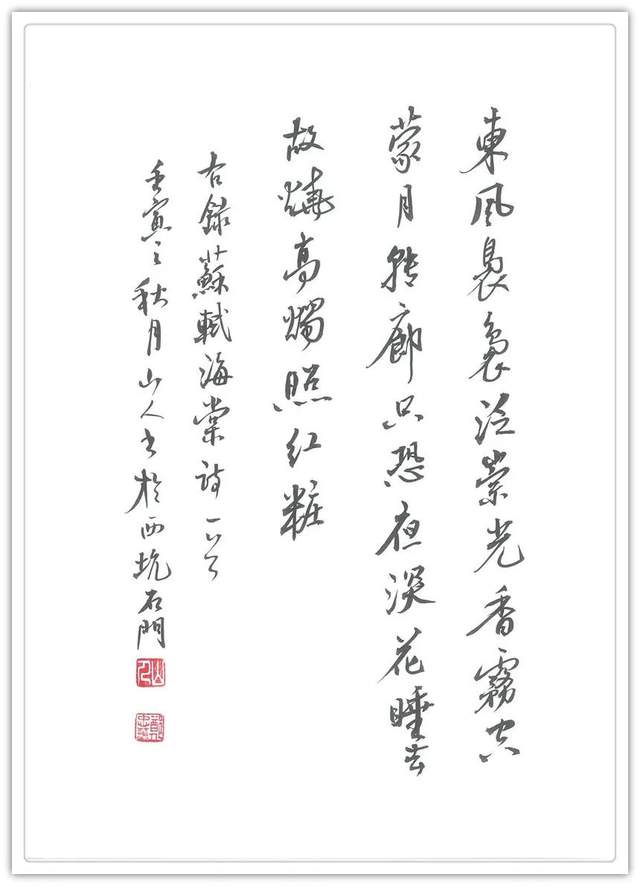 東風裊裊泛崇光香霧空
蒙月轉廊只恐夜深花睡去
故燒高燭照紅粧
右錄蘇軾海棠詩一首
壬寅之秋月山人書於西坑石門
山人